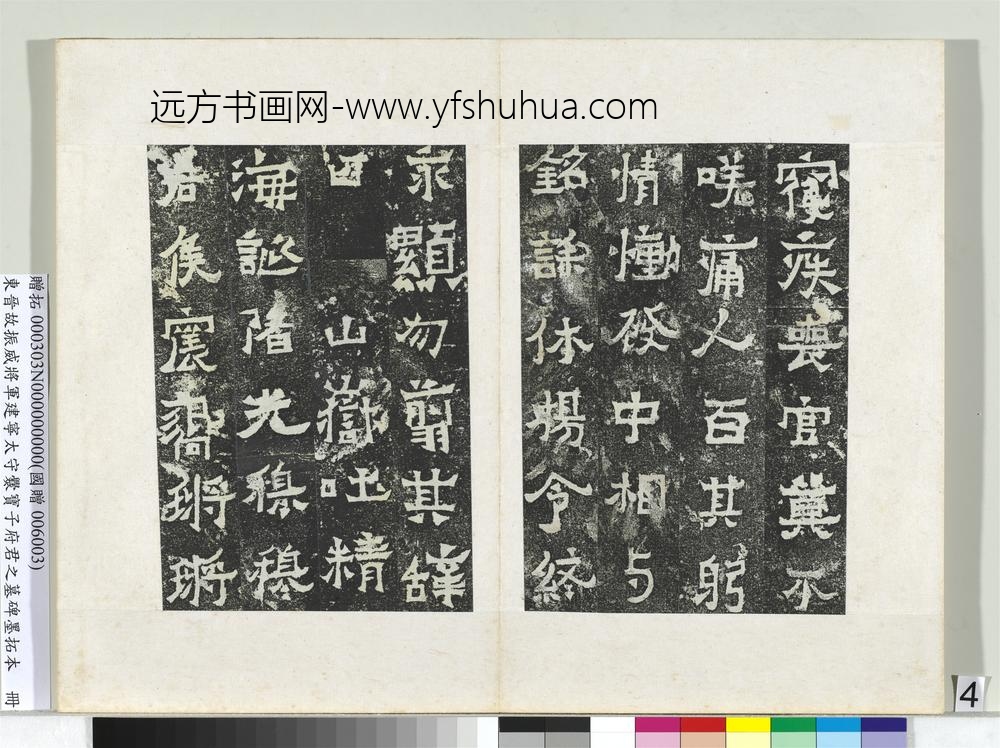 远方书画网-www.yfshuhua.com
寢疾喪官莫不
嗟痛人百其躬
情慟發中相与
銘誄休揚令終
永顯勿翦其辭
曰山嶽吐精
海誕陼光穆穆
君侯震響鏘鏘
贈拓 000303N000000000(國贈 006003)
東晉故振威將軍建寧太守爨寶子府君之墓碑墨拓本 冊
4